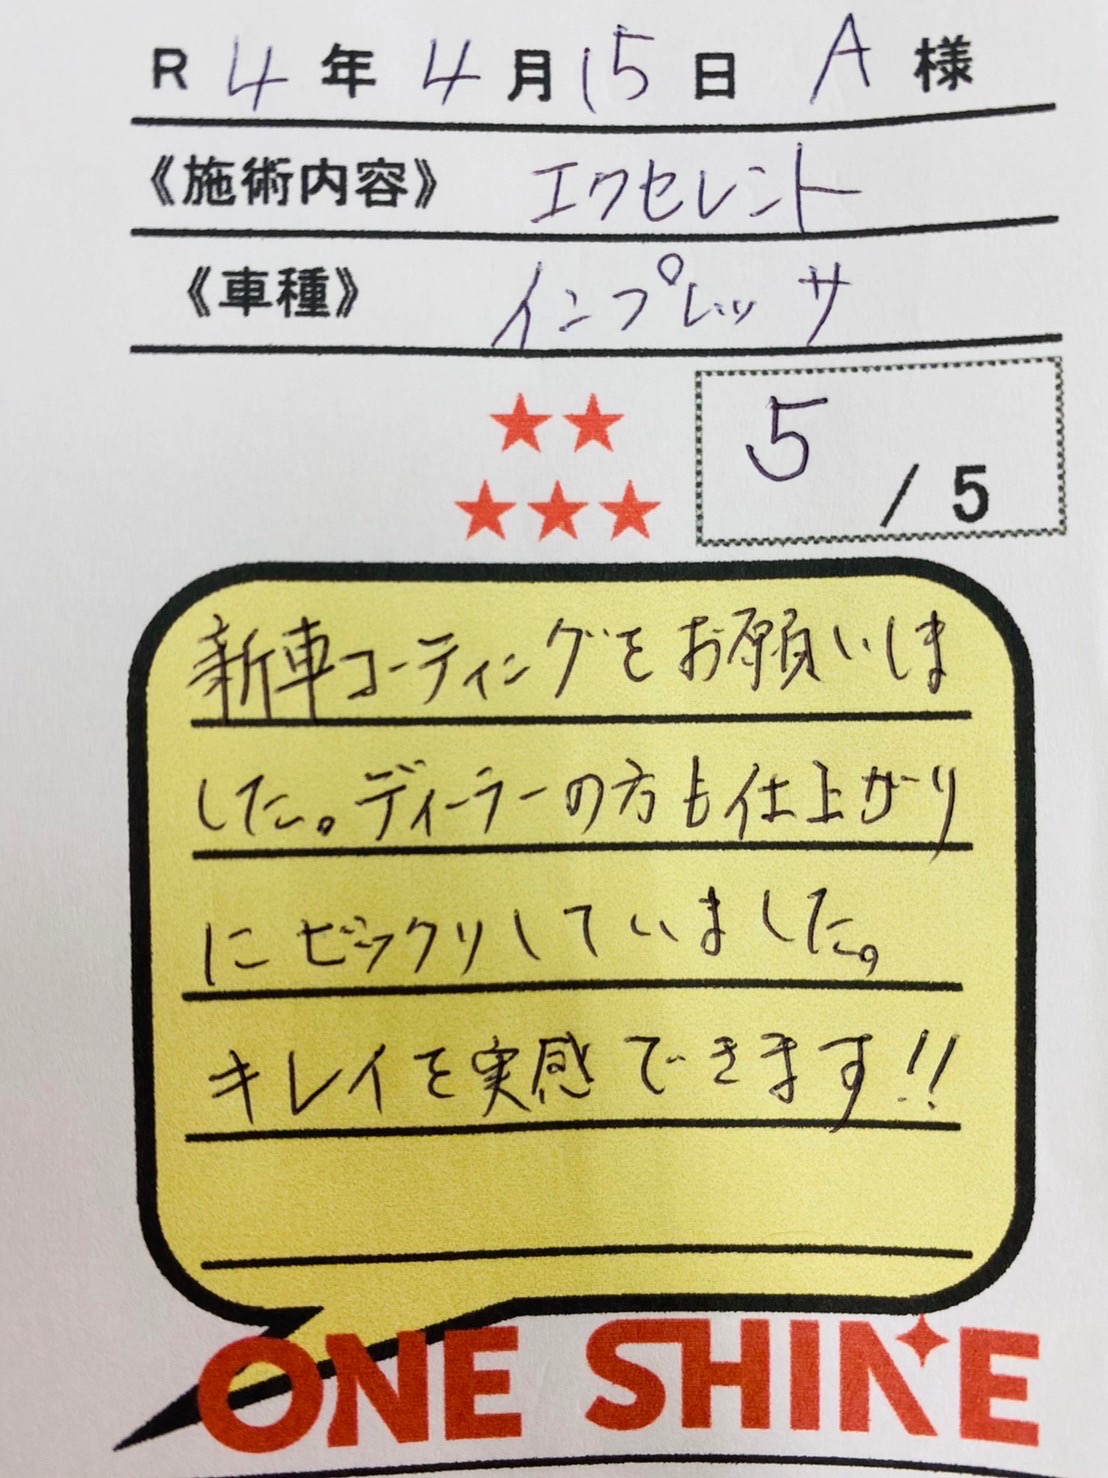 R 4年 4月 15日 A 様
《施術内容》 エクセレント
《車種》 インプレッサ
5 / 5
新車コーティングをお願いしま
した。ディーラーの方も仕上がり
にビックリしていました。
キレイを実感できます!!
ONE SHINE